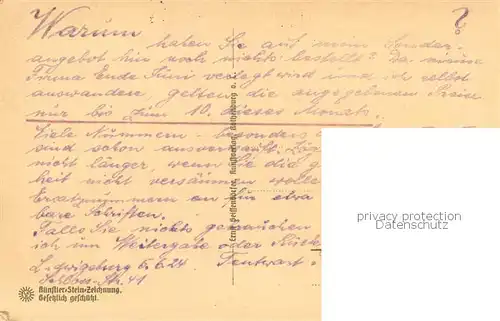 Warum ?
haben Sie auf mein Sonder-
angebot hin noch nichts bestellt? Da meine
Firma Ende Juni verlegt wird und ich selbst
auswandere, gelten die angegebenen Preise
nur bis zum 10. dieses Monats.
Viele Nummern besonders
sind schon ausverkauft. Zög
nicht länger, wenn Sie die g
heit nicht versäumen wolle
Ersatznummern an, für etwa
bare Schriften.
Falls Sie nichts gebrauchen
ich um Weitergabe oder Rück
L-wigsburg 5.6.24.
Schloss-Str. 41
Künstler-Stein-Zeichnung.
Gesetzlich geschützt.
Ernst Geissendörfer, Kunstverlag Rothenburg o. T.
privacy protection
Datenschutz